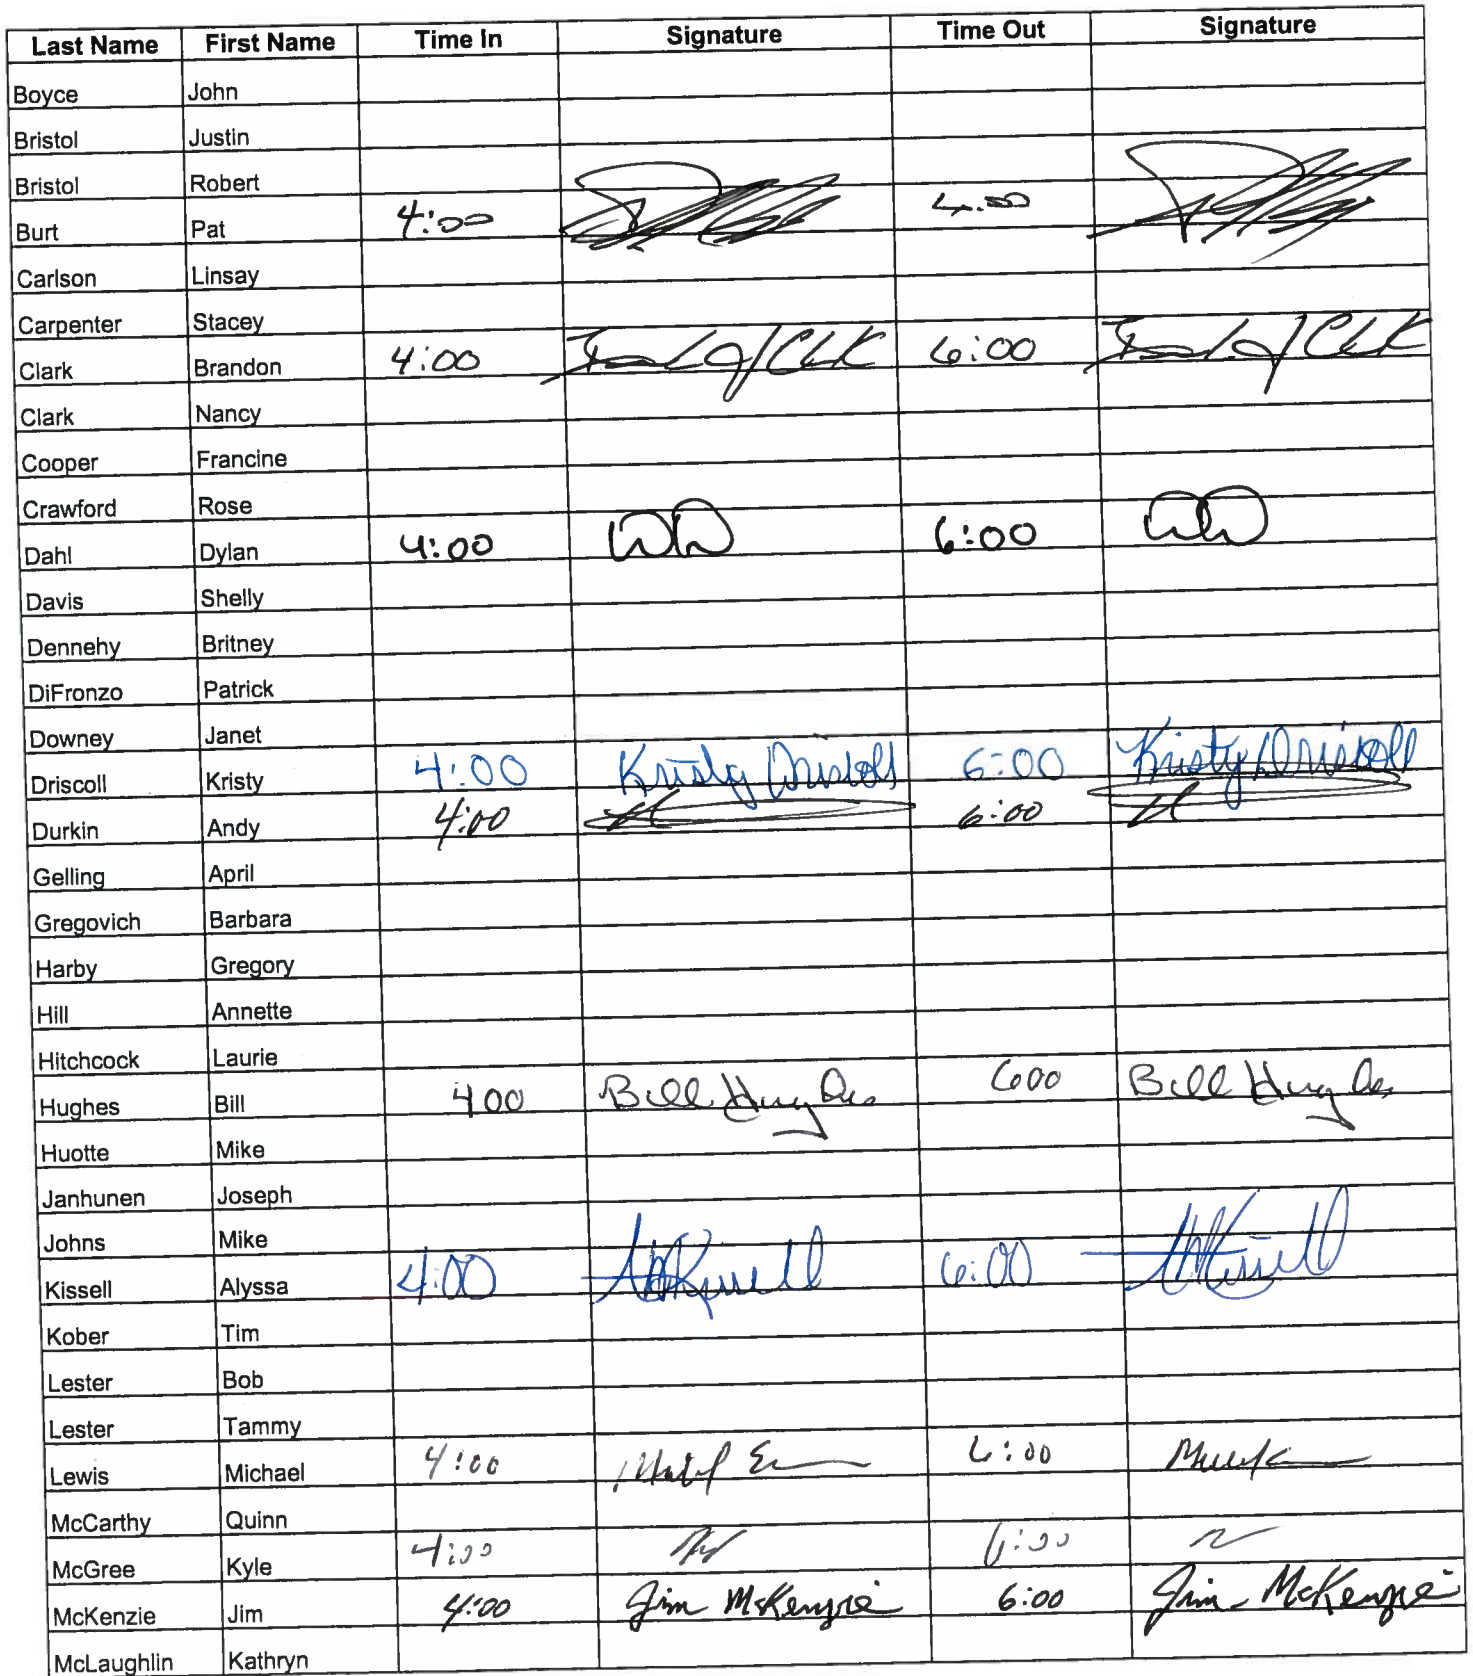 Last Name First Name Time In Signature Time Out Signature
Boyce John
Bristol Justin
Bristol Robert
Burt Pat 4:00 4:00
Carlson Linsay
Carpenter Stacey
Clark Brandon 4:00 6:00
Clark Nancy
Cooper Francine
Crawford Rose
Dahl Dylan 4:00 DD 6:00 DD
Davis Shelly
Dennehy Britney
DiFronzo Patrick
Downey Janet
Driscoll Kristy 4:00 Kristy Driscoll 6:00 Kristy Driscoll
Durkin Andy 4:00 6:00
Gelling April
Gregovich Barbara
Harby Gregory
Hill Annette
Hitchcock Laurie
Hughes Bill 400 Bill Hughes 600 Bill Hughes
Huotte Mike
Janhunen Joseph
Johns Mike
Kissell Alyssa 4:00 AKissell 6:00 AKissell
Kober Tim
Lester Bob
Lester Tammy
Lewis Michael 4:00 6:00
McCarthy Quinn
McGree Kyle 4:00 6:00
McKenzie Jim 4:00 Jim McKenzie 6:00 Jim McKenzie
McLaughlin Kathryn